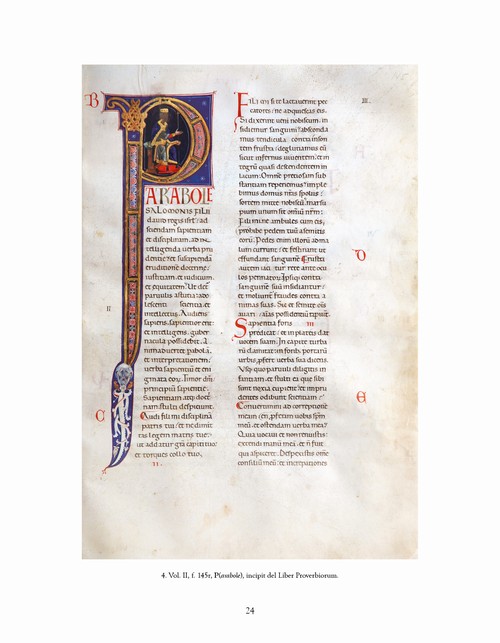 B
P
ARABOLE
SALOMONIS FILII
david regis isrl ad
sciendam sapientiam
et disciplinam. ad in
telligenda verba pru
dentie et suscipienda
eruditionē doctrine
iustitiam et iudicium
et equitatem Ut det
parvulis astutia ado
lescenti scientia et
II
intellectus Audiens
sapiens sapientior erit
et intelligens guber
nacula possidebit. A
et interpretationem
verba sapientiū et eni
gmata eorū. Timor dni
principiū sapientie
Sapientiam atq doct
nam stulti despiciunt
C
Audi fili mi disciplinā
patris tui et ne dimit
tas legem matris tue
ut addatur grā capiti tuo
et torques collo tuo.
II.
Fili mi si te lactaverint pec
catores ne adquiescas eis.
III.
Si dixerint veni nobiscum in
sidiemur sanguini abscon da
mus tendicula contra inson
tem frustra deglutiamus eū
sicut infernus viventem et in
tegrū quasi descendentem in
lacum Omnē preciosam sub
stantiam reperiemus imple
bimus domus nrās spoliis
sortem mitte nobiscū marsu
pium unum sit omniū nrm
Fili mi ne ambules cum eis
prohibe pedem tuū a semitis
eorū. Pedes enim illorū ad ma
lum currunt et festinant ut
D
effundant sanguinē Frustra
autem iacitur rete ante ocu
los pennatorū Ipsi qq contra
sanguinē suū insidiantur
et moliunt fraudes contra a
nimas suas. Sic semite oīs
avari aīas possidentiū rapiunt
Sapientia foris III
predicat et in plateis dat
vocem suam. In capite turba
rū clamitat in foribus portarū
urbis pfert verba sua dicens
Usq quo parvuli diligitis in
fantiam et stulti ea que sibi
sunt noxia cupient et impru
dentes odibunt scientiam
E
Convertimini ad correptionē
meam en pferam vobis spm
meū et ostendam verba mea
Quia vocavi et renuistis
extendi manū meā et n fuit
qui aspiceret Despexistis omē
consiliū meū et increpationes
4. Vol. II, f. 145r, P(arabole), incipit del Liber Proverbiorum.
24